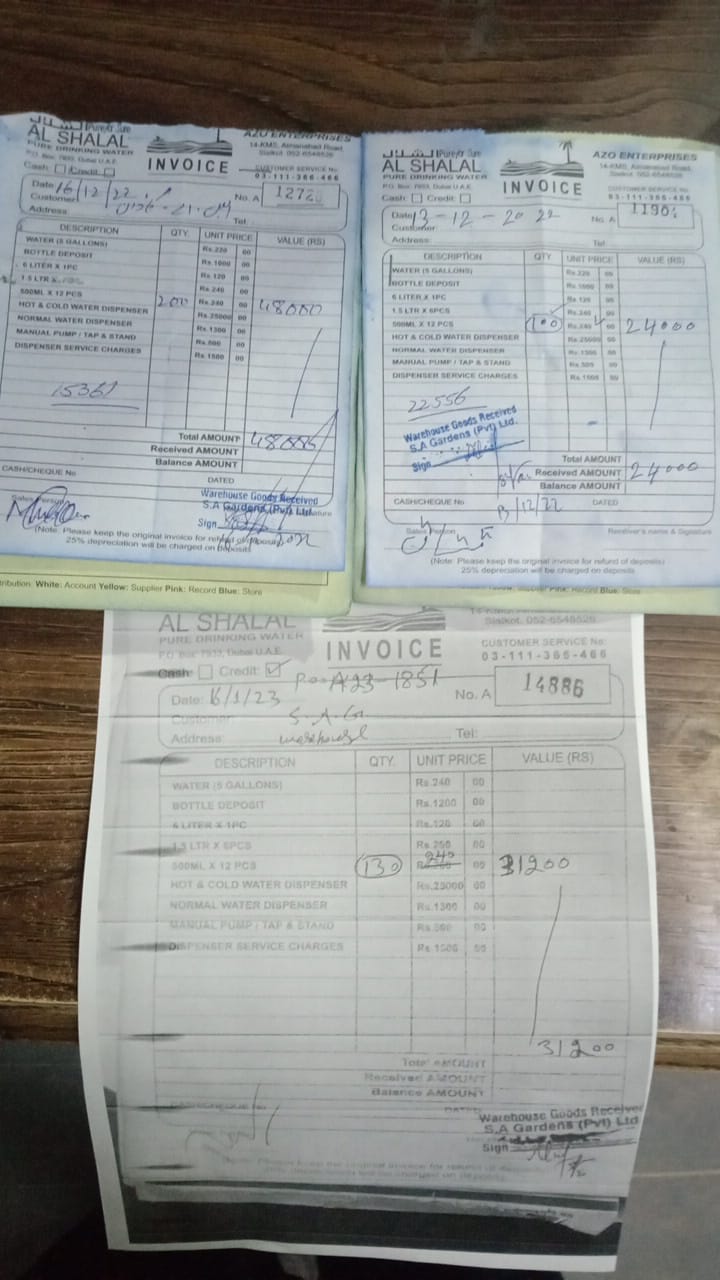 AL SHALAL
PURE DRINKING WATER
P.O. Box: 7893, Dubai U.A.E.
Cash: Credit:
INVOICE
AZO ENTERPRISES
14-KMS, Aimanabad Road,
Sialkot. 052-6548526
CUSTOMER SERVICE No:
03-111-365-466
Date 16/12/22
No. A
Customer
Address
Tel:
DESCRIPTION QTY. UNIT PRICE VALUE (RS)
WATER (5 GALLONS) Rs.220 00
BOTTLE DEPOSIT Rs.1000 00
6 LITER X 1PC Rs.120 00
1.5 LTR Rs.240 00
500ML X 12 PCS 200 Rs.240 00 48000
HOT & COLD WATER DISPENSER Rs.25000 00
NORMAL WATER DISPENSER Rs.1300 00
MANUAL PUMP / TAP & STAND Rs.500 00
DISPENSER SERVICE CHARGES Rs.1500 00
15361
Total AMOUNT 48000
Received AMOUNT
Balance AMOUNT
CASH/CHEQUE No DATED
Warehouse Goods Received
S.A Gardens (Pvt) Ltd.
Sign
(Note: Please keep the original invoice for refund of deposits)
25% depreciation will be charged on deposits
Distribution: White: Account Yellow: Supplier Pink: Record Blue: Store
الشلال
AL SHALAL
PURE DRINKING WATER
P.O. Box: 7893, Dubai U.A.E
Cash: Credit:
INVOICE
AZO ENTERPRISES
14-KMS, Aimanabad Road,
Sialkot. 052-6548526
CUSTOMER SERVICE No:
03-111-365-466
Date 13-12-2022
No. A
Customer
Address:
Tel
DESCRIPTION QTY UNIT PRICE VALUE (RS)
WATER (5 GALLONS) Rs.220 00
BOTTLE DEPOSIT Rs.1000 00
6 LITER X 1PC Rs.120 00
1.5 LTR X 6PCS Rs.240 00
500ML X 12 PCS 100 Rs.240 00 24000
HOT & COLD WATER DISPENSER Rs.25000 00
NORMAL WATER DISPENSER Rs.1300 00
MANUAL PUMP / TAP & STAND Rs.500 00
DISPENSER SERVICE CHARGES Rs.1500 00
22556
Warehouse Goods Received
S.A Gardens (Pvt) Ltd.
Sign
Total AMOUNT
Received AMOUNT 24000
Balance AMOUNT
CASH/CHEQUE No 13/12/22 DATED
Sales Person Receiver's name & Signature
(Note: Please keep the original invoice for refund of deposits)
25% depreciation will be charged on deposits
AL SHALAL
PURE DRINKING WATER
P.O. Box: 7893, Dubai U.A.E
Cash: Credit:
INVOICE
Sialkot. 052-6548526
CUSTOMER SERVICE No:
03-111-365-466
A23-1851
Date: 6/1/23
No. A 14886
Customer: S.A.G.
Address: warehouse Tel:
DESCRIPTION QTY. UNIT PRICE VALUE (RS)
WATER (5 GALLONS) Rs.240 00
BOTTLE DEPOSIT Rs.1200 00
6 LITER X 1PC Rs.120 00
1.5 LTR X 6PCS Rs.250 00
500ML X 12 PCS 130 240 00 31200
HOT & COLD WATER DISPENSER Rs.25000 00
NORMAL WATER DISPENSER Rs.1300 00
MANUAL PUMP / TAP & STAND Rs.500 00
DISPENSER SERVICE CHARGES Rs.1500 00
31200
Total AMOUNT
Received AMOUNT
Balance AMOUNT
Warehouse Goods Received
S.A Gardens (Pvt) Ltd
Sign